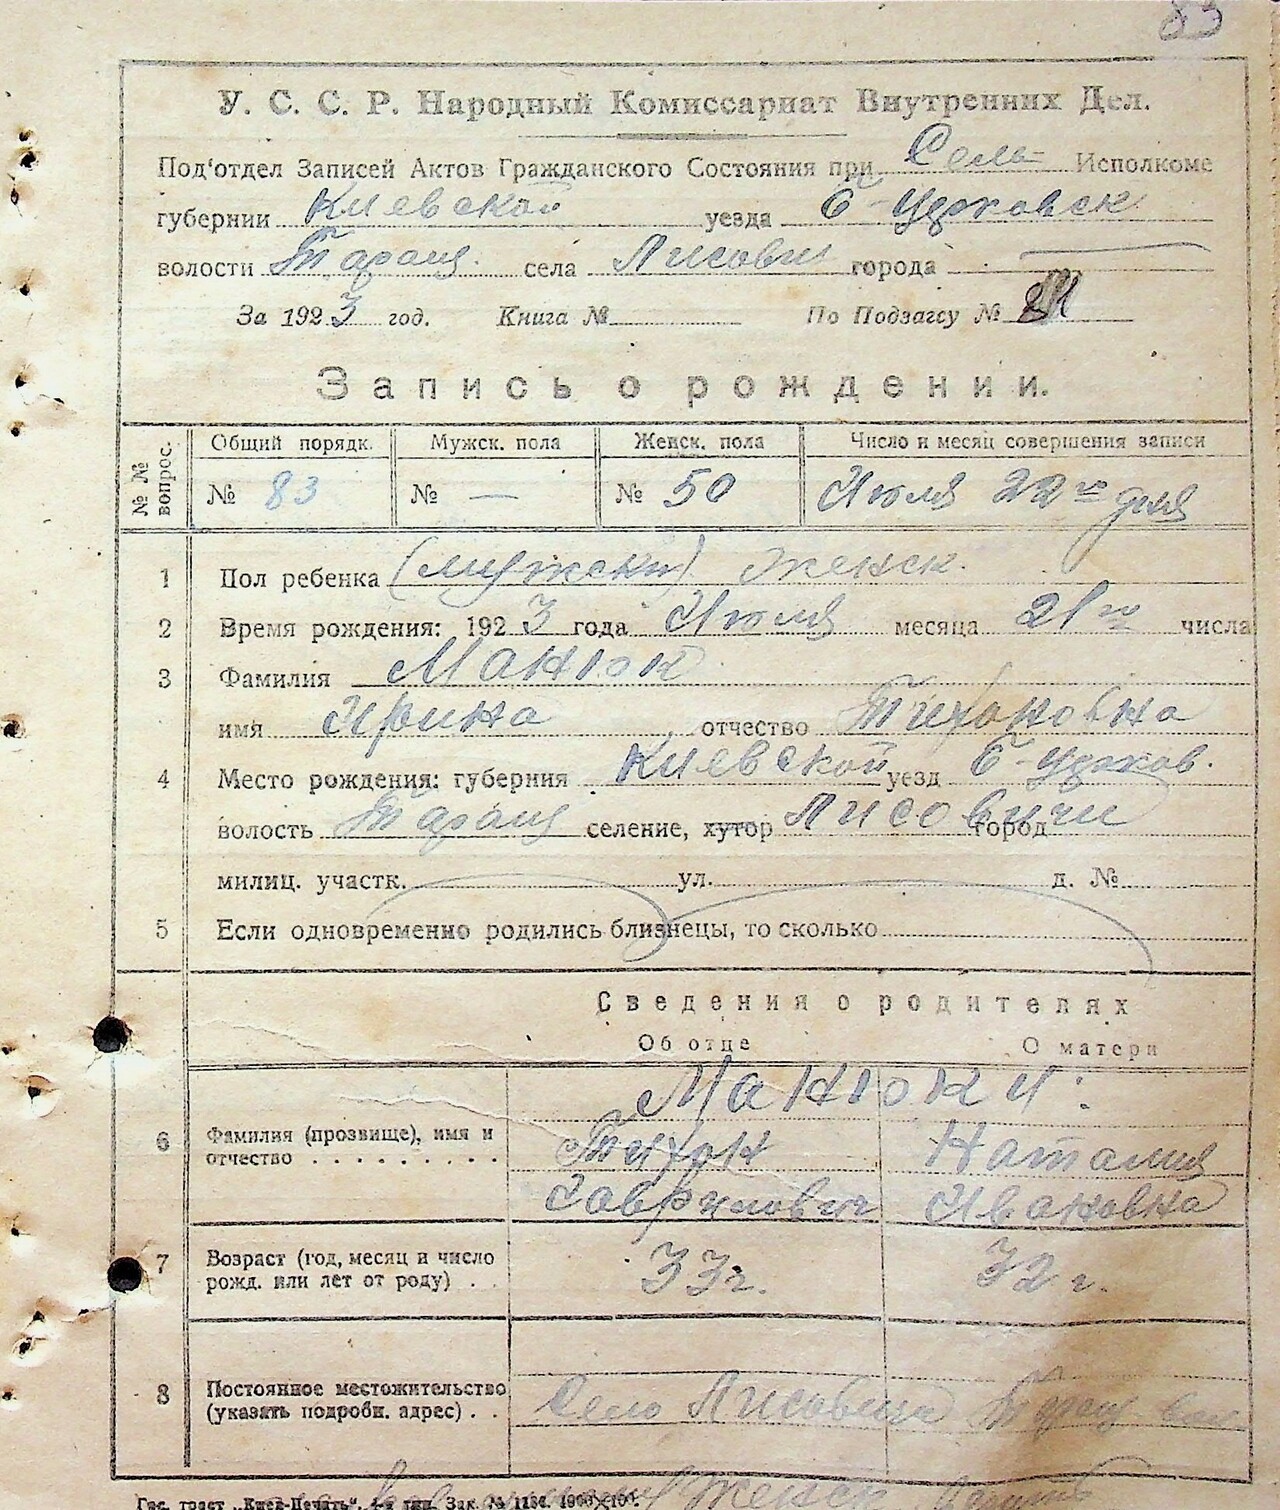 83
У. С. С. Р. Народный Комиссариат Внутренних Дел.
Под'отдел Записей Актов Гражданского Состояния при Сель Исполкоме
губернии Киевской уезда Б-Церковск
волости Таращ. села Лисович города —
За 1923 год. Книга № По Подзагсу №
Запись о рождении.
№ № вопрос. Общий порядк. Мужск. пола Женск. пола Число и месяц совершения записи
№ 83 № — № 50 Июля 22го дня
1 Пол ребенка (мужски) женск.
2 Время рождения: 1923 года Июля месяца 21го числа
3 Фамилия Манюк
имя Ирина отчество Тихоновна
4 Место рождения: губерния Киевской уезд Б-Церков.
волость Таращ селение, хутор Лисовичи город
милиц. участк. ул. д. №
5 Если одновременно родились близнецы, то сколько
Сведения о родителях
Об отце О матери
Манюки:
6 Фамилия (прозвище), имя и отчество . . . . . . . . . Тихон Наталия
Гаврилович Ивановна
7 Возраст (год, месяц и число рожд. или лет от роду) . . 33 г. 32 г.
8 Постоянное местожительство (указать подробн. адрес) . . Село Лисовичи Таращ вол
Женск
Гос. трест „Киев-Печать“, Зак. № 1184.